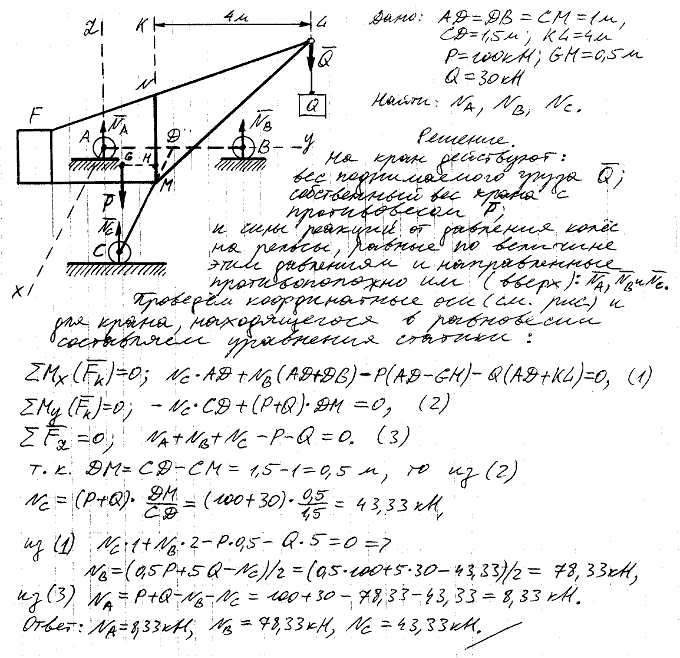 Дано: AD=DB=CM=1м,
CD=1,5м; KL=4м
P=100кН; GH=0,5м
Q=30кН
Найти: N_A, N_B, N_C.
Z K 4м L
Q̅
Q
N
F
A N̅_A D N̅_B B y
G H
M
P̅
N̅_C
C
X
Решение.
На кран действуют:
вес поднимаемого груза Q̅;
собственный вес крана с
противовесом P̅;
и силы реакций от давления колёс
на рельсы, равные по величине
этим давлениям и направленные
противоположно им (вверх): N̅_A, N̅_B и N̅_C.
Проведём координатные оси (см. рис) и
для крана, находящегося в равновесии
составляем уравнения статики:
ΣM_x(F̅_k)=0; N_C·AD+N_B(AD+DB)-P(AD-GH)-Q(AD+KL)=0, (1)
ΣM_y(F̅_k)=0; -N_C·CD+(P+Q)·DM=0, (2)
ΣF̅_z=0; N_A+N_B+N_C-P-Q=0. (3)
т.к. DM=CD-CM=1,5-1=0,5 м, то из (2)
N_C=(P+Q)·DM/CD=(100+30)·0,5/1,5=43,33 кН,
из (1) N_C·1+N_B·2-P·0,5-Q·5=0=>
N_B=(0,5P+5Q-N_C)/2=(0,5·100+5·30-43,33)/2=78,33кН,
из (3) N_A=P+Q-N_B-N_C=100+30-78,33-43,33=8,33кН.
Ответ: N_A=8,33кН, N_B=78,33кН, N_C=43,33кН.